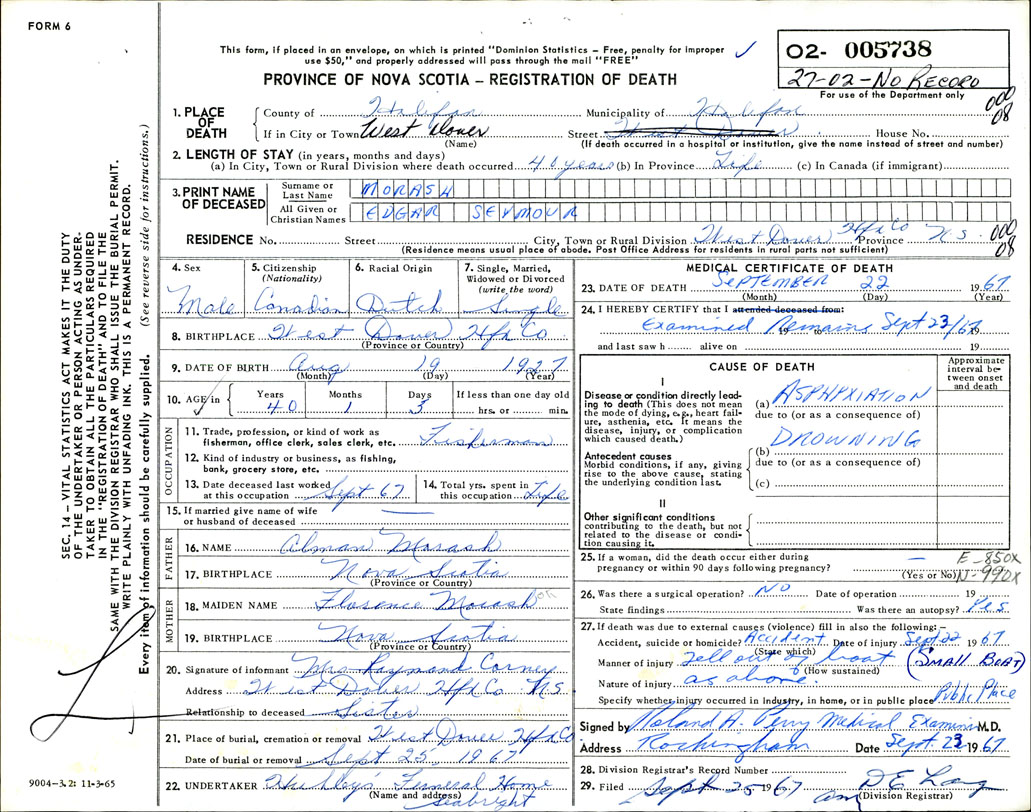 FORM 6
This form, if placed in an envelope, on which is printed "Dominion Statistics – Free, penalty for improper
use $50," and properly addressed will pass through the mail "FREE"
PROVINCE OF NOVA SCOTIA – REGISTRATION OF DEATH
O2- 005738
27-02-No RECORD
For use of the Department only
000
08
SEC. 14 – VITAL STATISTICS ACT MAKES IT THE DUTY
OF THE UNDERTAKER OR PERSON ACTING AS UNDER-
TAKER TO OBTAIN ALL THE PARTICULARS REQUIRED
IN THE "REGISTRATION OF DEATH" AND TO FILE THE
SAME WITH THE DIVISION REGISTRAR WHO SHALL ISSUE THE BURIAL PERMIT.
WRITE PLAINLY WITH UNFADING INK. THIS IS A PERMANENT RECORD.
Every item of information should be carefully supplied. (See reverse side for instructions.)
1. PLACE OF DEATH
County of Halifax Municipality of Halifax
If in City or Town West Dover Street House No.
(Name) (If death occurred in a hospital or institution, give the name instead of street and number)
2. LENGTH OF STAY (in years, months and days)
(a) In City, Town or Rural Division where death occurred 40 years (b) In Province Life (c) In Canada (if immigrant)
3. PRINT NAME OF DECEASED
Surname or Last Name MORASH
All Given or Christian Names EDGAR SEYMOUR
RESIDENCE No. Street City, Town or Rural Division West Dover Hfx Co Province N.S. 000
08
(Residence means usual place of abode. Post Office Address for residents in rural parts not sufficient)
4. Sex Male
5. Citizenship (Nationality) Canadian
6. Racial Origin Dutch
7. Single, Married, Widowed or Divorced (write the word) Single
8. BIRTHPLACE West Dover Hfx Co
(Province or Country)
9. DATE OF BIRTH Aug 19 1927
(Month) (Day) (Year)
10. AGE in Years 40 Months 1 Days 3 If less than one day old hrs. or min.
OCCUPATION
11. Trade, profession, or kind of work as
fisherman, office clerk, sales clerk, etc. Fisherman
12. Kind of industry or business, as fishing,
bank, grocery store, etc.
13. Date deceased last worked
at this occupation Sept 67
14. Total yrs. spent in
this occupation Life
15. If married give name of wife
or husband of deceased —
FATHER
16. NAME Alman Morash
17. BIRTHPLACE Nova Scotia
(Province or Country)
MOTHER
18. MAIDEN NAME Florence Morash OK
19. BIRTHPLACE Nova Scotia
(Province or Country)
20. Signature of informant Mrs Raymond Corney
Address West Dover Hfx Co N.S
Relationship to deceased Sister
21. Place of burial, cremation or removal West Dover Hfx Co
Date of burial or removal Sept 25 1967
22. UNDERTAKER Hubley's Funeral Home
(Name and address) Seabright
9004–3.2: 11-3-65
MEDICAL CERTIFICATE OF DEATH
23. DATE OF DEATH SEPTEMBER 22 1967
(Month) (Day) (Year)
24. I HEREBY CERTIFY that I attended deceased from:
Examined Remains Sept 23/67 19 to 19
and last saw h alive on 19
CAUSE OF DEATH
Approximate interval between onset and death
I
Disease or condition directly lead-
ing to death (This does not mean
the mode of dying, e.g., heart fail-
ure, asthenia, etc. It means the
disease, injury, or complication
which caused death.)
(a) ASPHYXIATION
due to (or as a consequence of)
DROWNING
Antecedent causes
Morbid conditions, if any, giving
rise to the above cause, stating
the underlying condition last.
(b)
due to (or as a consequence of)
(c)
II
Other significant conditions
contributing to the death, but not
related to the disease or condi-
tion causing it.
25. If a woman, did the death occur either during
pregnancy or within 90 days following pregnancy? —
(Yes or No)
E-850X
N-990X
26. Was there a surgical operation? NO Date of operation 19
State findings Was there an autopsy? Yes.
27. If death was due to external causes (violence) fill in also the following:–
Accident, suicide or homicide? Accident Date of injury Sept 22 1967
(State which)
Manner of injury Fell out of boat (SMALL BOAT)
(How sustained)
Nature of injury as above.
Specify whether injury occurred in Industry, in home, or in public place Public Place
Signed by Roland A. Perry Medical Examiner M.D.
Address Rockingham Date Sept. 23 1967
28. Division Registrar's Record Number
29. Filed Sept 25 1967 D E Lang
(Division Registrar)